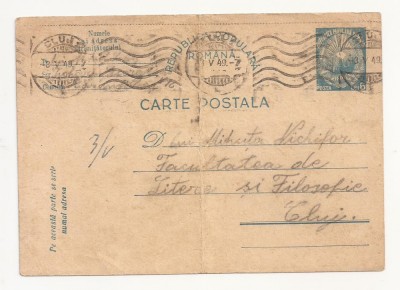 Numele
și adresa
REPUBLICA POPULARĂ
ROMÂNĂ
CLUJ
V 49
CARTE POSTALA
3/V
D lui Mihuta Nichifor
Facultatea de
Litere și Filosofie
Cluj.
Pe această parte se scrie
numai adresa